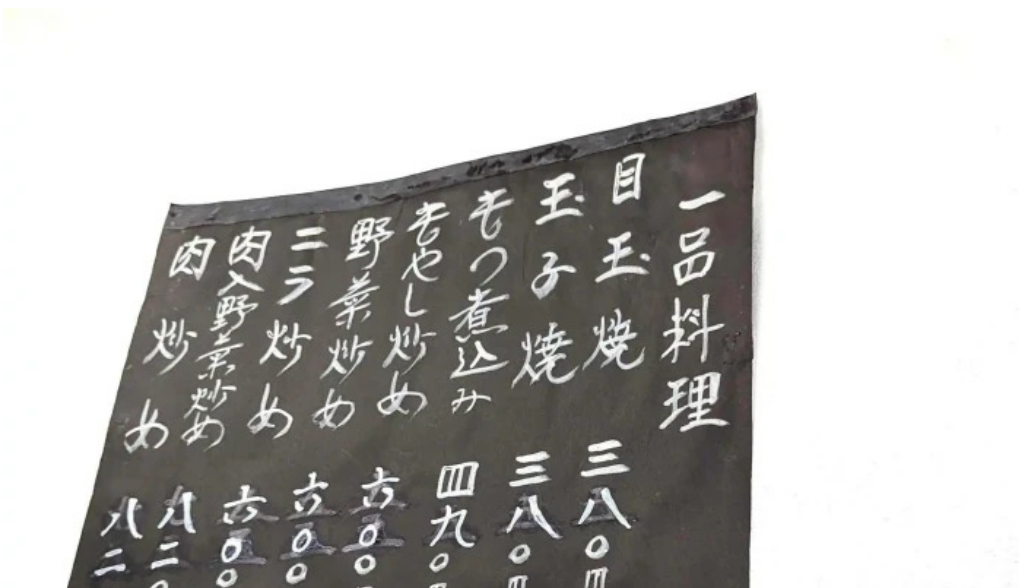 一品料理
目玉焼 三八〇円
玉子焼 三八〇円
もつ煮込み 四九〇円
もやし炒め 六〇〇
野菜炒め 六〇〇
ニラ炒め 六〇〇
肉入野菜炒め 八二〇
肉炒め 八二